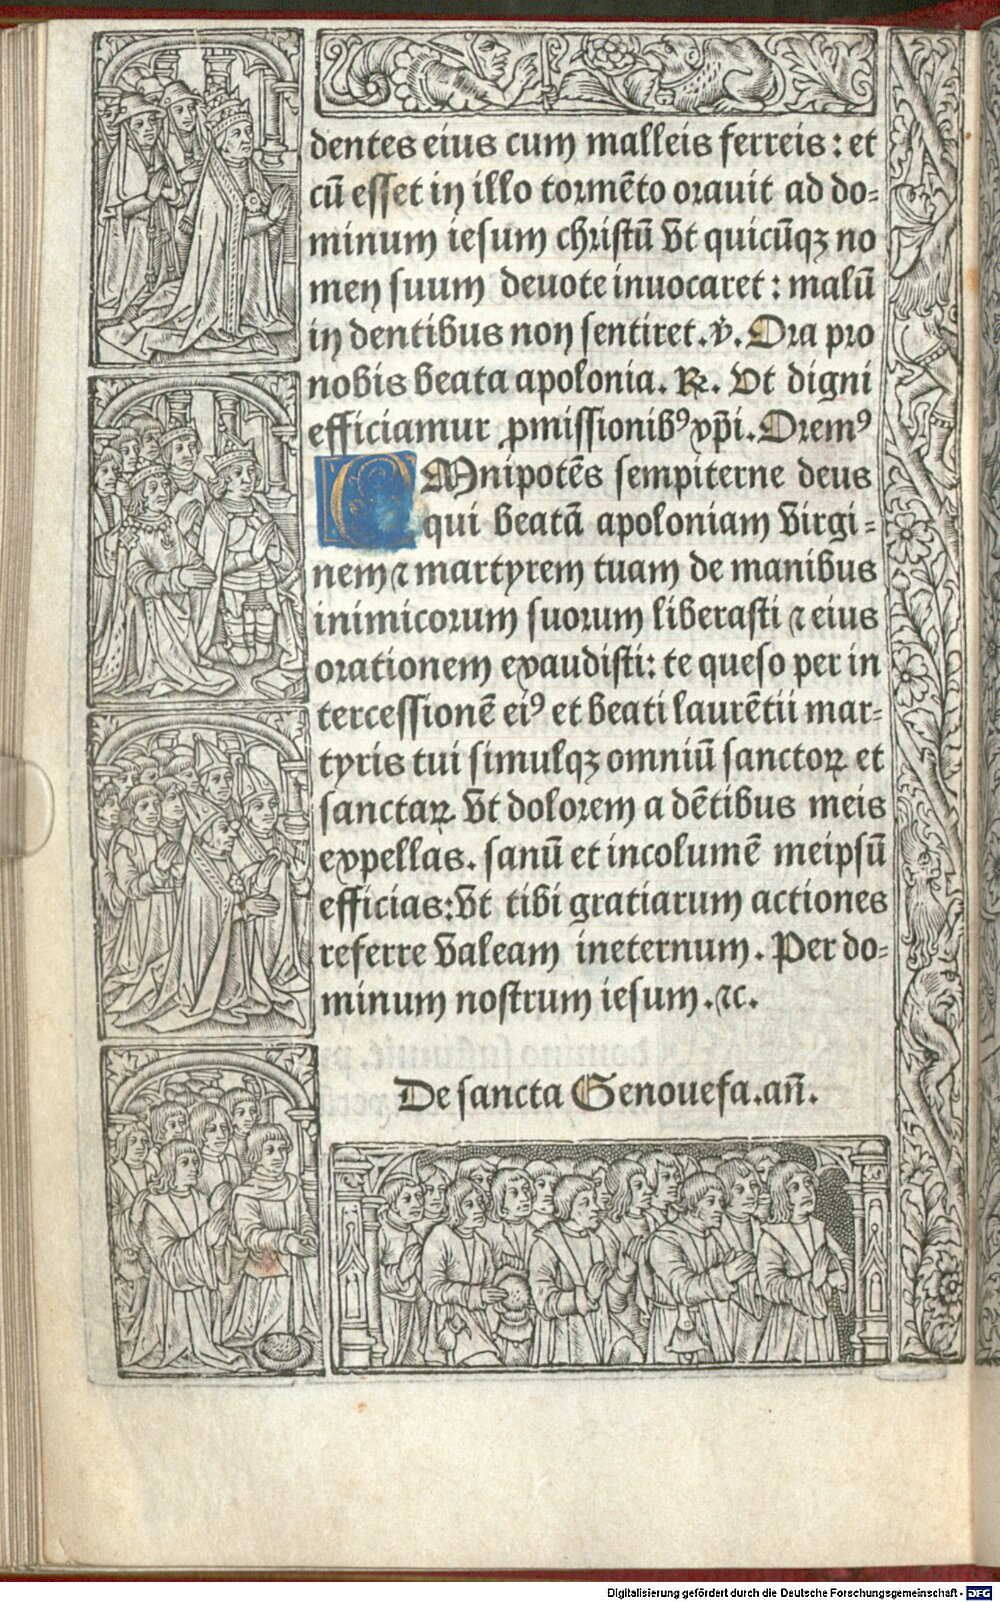 dentes eius cum malleis ferreis: et
cū esset in illo tormēto orauit ad do-
minum iesum christū vt quicūqꝫ no
men suum deuote inuocaret: malū
in dentibus non sentiret. ℣. Ora pro
nobis beata apolonia. ℟. Vt digni
efficiamur ꝓmissionibꝰ xp̄i. Oremꝰ
OMnipotēs sempiterne deus
qui beatā apoloniam virgi-
nem ⁊ martyrem tuam de manibus
inimicorum suorum liberasti ⁊ eius
orationem exaudisti: te queso per in
tercessionē eiꝰ et beati laurētii mar-
tyris tui simulqꝫ omniū sanctoꝝ et
sanctaꝝ vt dolorem a dētibus meis
expellas. sanū et incolumē meipsū
efficias: vt tibi gratiarum actiones
referre valeam ineternum. Per do-
minum nostrum iesum. ⁊c.
De sancta Genouefa. añ.
Digitalisierung gefördert durch die Deutsche Forschungsgemeinschaft - DFG